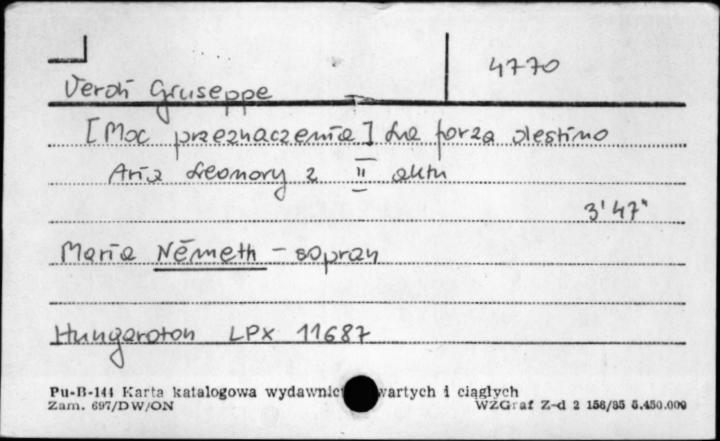 4770
Verdi Giuseppe
[Moc przeznaczenia] La forza destino
Aria Leonory z II aktu
3'47"
Maria Németh - sopran
Hungaroton LPX 11687
Pu-B-144 Karta katalogowa wydawnic wartych i ciągłych
Zam. 697/DW/ON WZGraf Z-d 2 156/85 5.450.000